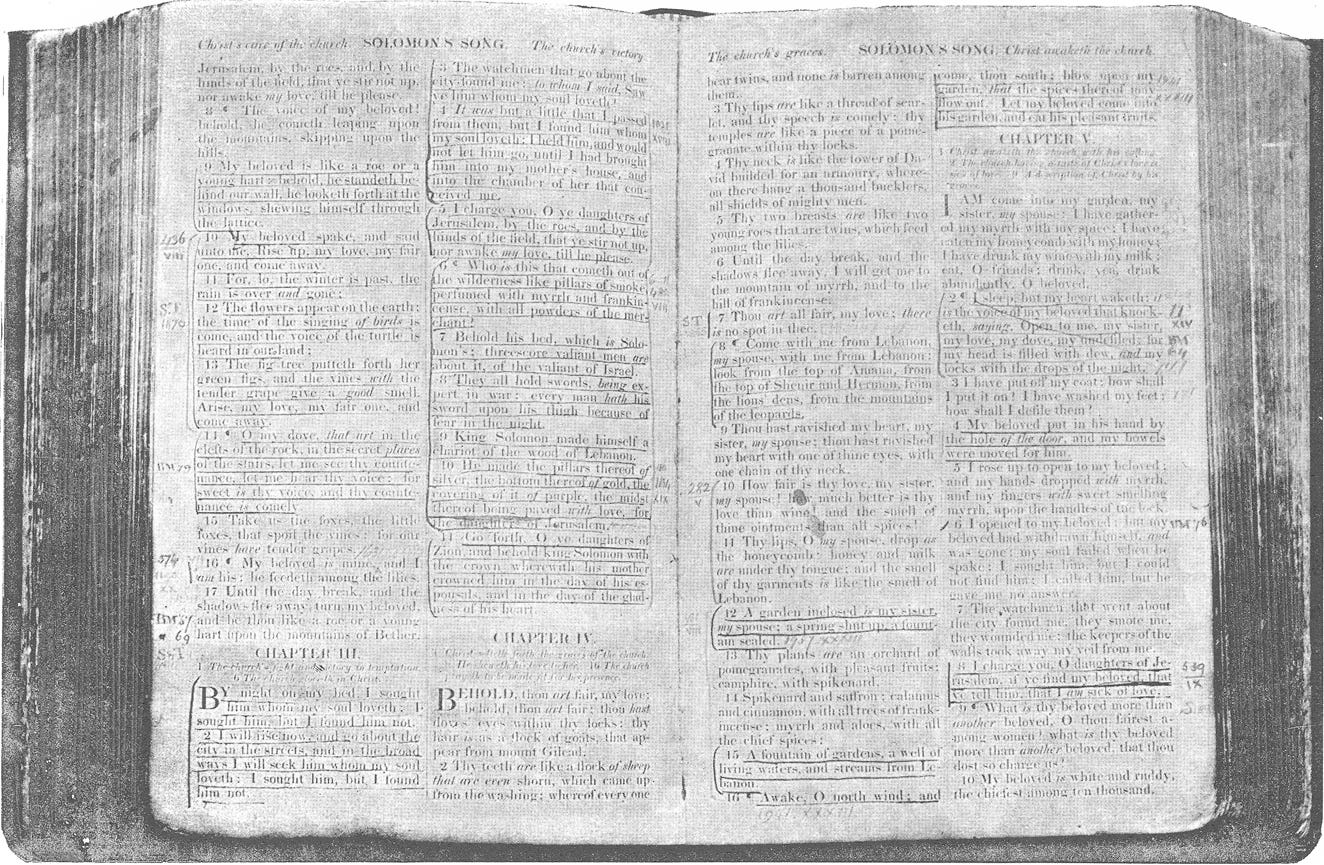 Christ's care of the church. SOLOMON'S SONG. The church's victory
Jerusalem, by the roes, and by the
hinds of the field, that ye stir not up,
nor awake my love, till he please.
8 ¶ The voice of my beloved!
behold, he cometh leaping upon
the mountains, skipping upon the
hills.
9 My beloved is like a roe or a
young hart: behold, he standeth be-
hind our wall, he looketh forth at the
windows, shewing himself through
the lattice.
10 My beloved spake, and said
unto me, Rise up, my love, my fair
one, and come away.
11 For, lo, the winter is past, the
rain is over and gone;
12 The flowers appear on the earth;
the time of the singing of birds is
come, and the voice of the turtle is
heard in our land;
13 The fig-tree putteth forth her
green figs, and the vines with the
tender grape give a good smell.
Arise, my love, my fair one, and
come away.
14 ¶ O my dove, that art in the
clefts of the rock, in the secret places
of the stairs, let me see thy counte-
nance, let me hear thy voice; for
sweet is thy voice, and thy counte-
nance is comely
15 Take us the foxes, the little
foxes, that spoil the vines: for our
vines have tender grapes.
16 ¶ My beloved is mine, and I
am his: he feedeth among the lilies.
17 Until the day break, and the
shadows flee away, turn, my beloved,
and be thou like a roe or a young
hart upon the mountains of Bether.
CHAPTER III.
1 The church's fight and victory in temptation.
6 The church glorieth in Christ.
BY night on my bed, I sought
him whom my soul loveth: I
sought him, but I found him not.
2 I will rise now, and go about the
city in the streets, and in the broad
ways I will seek him whom my soul
loveth: I sought him, but I found
him not.
3 The watchmen that go about the
city found me: to whom I said, Saw
ye him whom my soul loveth?
4 It was but a little that I passed
from them, but I found him whom
my soul loveth: I held him, and would
not let him go, until I had brought
him into my mother's house, and
into the chamber of her that con-
ceived me.
5 I charge you, O ye daughters of
Jerusalem, by the roes, and by the
hinds of the field, that ye stir not up,
nor awake my love, till he please.
6 ¶ Who is this that cometh out of
the wilderness like pillars of smoke,
perfumed with myrrh and frankin-
cense, with all powders of the mer-
chant?
7 Behold his bed, which is Solo-
mon's; threescore valiant men are
about it, of the valiant of Israel.
8 They all hold swords, being ex-
pert in war: every man hath his
sword upon his thigh because of
fear in the night.
9 King Solomon made himself a
chariot of the wood of Lebanon.
10 He made the pillars thereof of
silver, the bottom thereof of gold, the
covering of it of purple, the midst
thereof being paved with love, for
the daughters of Jerusalem.
11 Go forth, O ye daughters of
Zion, and behold king Solomon with
the crown wherewith his mother
crowned him in the day of his es-
pousals, and in the day of the glad-
ness of his heart.
CHAPTER IV.
BEHOLD, thou art fair, my love;
behold, thou art fair; thou hast
doves' eyes within thy locks: thy
hair is as a flock of goats, that ap-
pear from mount Gilead.
2 Thy teeth are like a flock of sheep
that are even shorn, which came up
from the washing; whereof every one
The church's graces. SOLOMON'S SONG. Christ awaketh the church.
bear twins, and none is barren among
them.
3 Thy lips are like a thread of scar-
let, and thy speech is comely: thy
temples are like a piece of a pome-
granate within thy locks.
4 Thy neck is like the tower of Da-
vid builded for an armoury, where-
on there hang a thousand bucklers,
all shields of mighty men.
5 Thy two breasts are like two
young roes that are twins, which feed
among the lilies.
6 Until the day break, and the
shadows flee away, I will get me to
the mountain of myrrh, and to the
hill of frankincense.
7 Thou art all fair, my love; there
is no spot in thee.
8 ¶ Come with me from Lebanon,
my spouse, with me from Lebanon:
look from the top of Amana, from
the top of Shenir and Hermon, from
the lions' dens, from the mountains
of the leopards.
9 Thou hast ravished my heart, my
sister, my spouse; thou hast ravished
my heart with one of thine eyes, with
one chain of thy neck.
10 How fair is thy love, my sister,
my spouse! how much better is thy
love than wine! and the smell of
thine ointments than all spices!
11 Thy lips, O my spouse, drop as
the honeycomb: honey and milk
are under thy tongue; and the smell
of thy garments is like the smell of
Lebanon.
12 A garden inclosed is my sister,
my spouse; a spring shut up, a fount-
ain sealed.
13 Thy plants are an orchard of
pomegranates, with pleasant fruits;
camphire, with spikenard,
14 Spikenard and saffron; calamus
and cinnamon, with all trees of frank-
incense; myrrh and aloes, with all
the chief spices:
15 A fountain of gardens, a well of
living waters, and streams from Le-
banon.
16 ¶ Awake, O north wind; and
come, thou south; blow upon my
garden, that the spices thereof may
flow out. Let my beloved come into
his garden, and eat his pleasant fruits.
CHAPTER V.
1 Christ awaketh the church with his calling.
I AM come into my garden, my
sister, my spouse: I have gather-
ed my myrrh with my spice; I have
eaten my honeycomb with my honey;
I have drunk my wine with my milk:
eat, O friends; drink, yea, drink
abundantly, O beloved.
2 ¶ I sleep, but my heart waketh: it
is the voice of my beloved that knock-
eth, saying, Open to me, my sister,
my love, my dove, my undefiled: for
my head is filled with dew, and my
locks with the drops of the night.
3 I have put off my coat; how shall
I put it on? I have washed my feet;
how shall I defile them?
4 My beloved put in his hand by
the hole of the door, and my bowels
were moved for him.
5 I rose up to open to my beloved;
and my hands dropped with myrrh,
and my fingers with sweet smelling
myrrh, upon the handles of the lock.
6 I opened to my beloved; but my
beloved had withdrawn himself, and
was gone: my soul failed when he
spake: I sought him, but I could
not find him; I called him, but he
gave me no answer.
7 The watchmen that went about
the city found me, they smote me,
they wounded me; the keepers of the
walls took away my veil from me.
8 I charge you, O daughters of Je-
rusalem, if ye find my beloved, that
ye tell him, that I am sick of love.
9 ¶ What is thy beloved more than
another beloved, O thou fairest a-
mong women? what is thy beloved
more than another beloved, that thou
dost so charge us?
10 My beloved is white and ruddy,
the chiefest among ten thousand.
436
VIII
S.T.
1879
BM 79
574
BM 57
69
S.T
S.T.
282
V
BM 76
539
IX